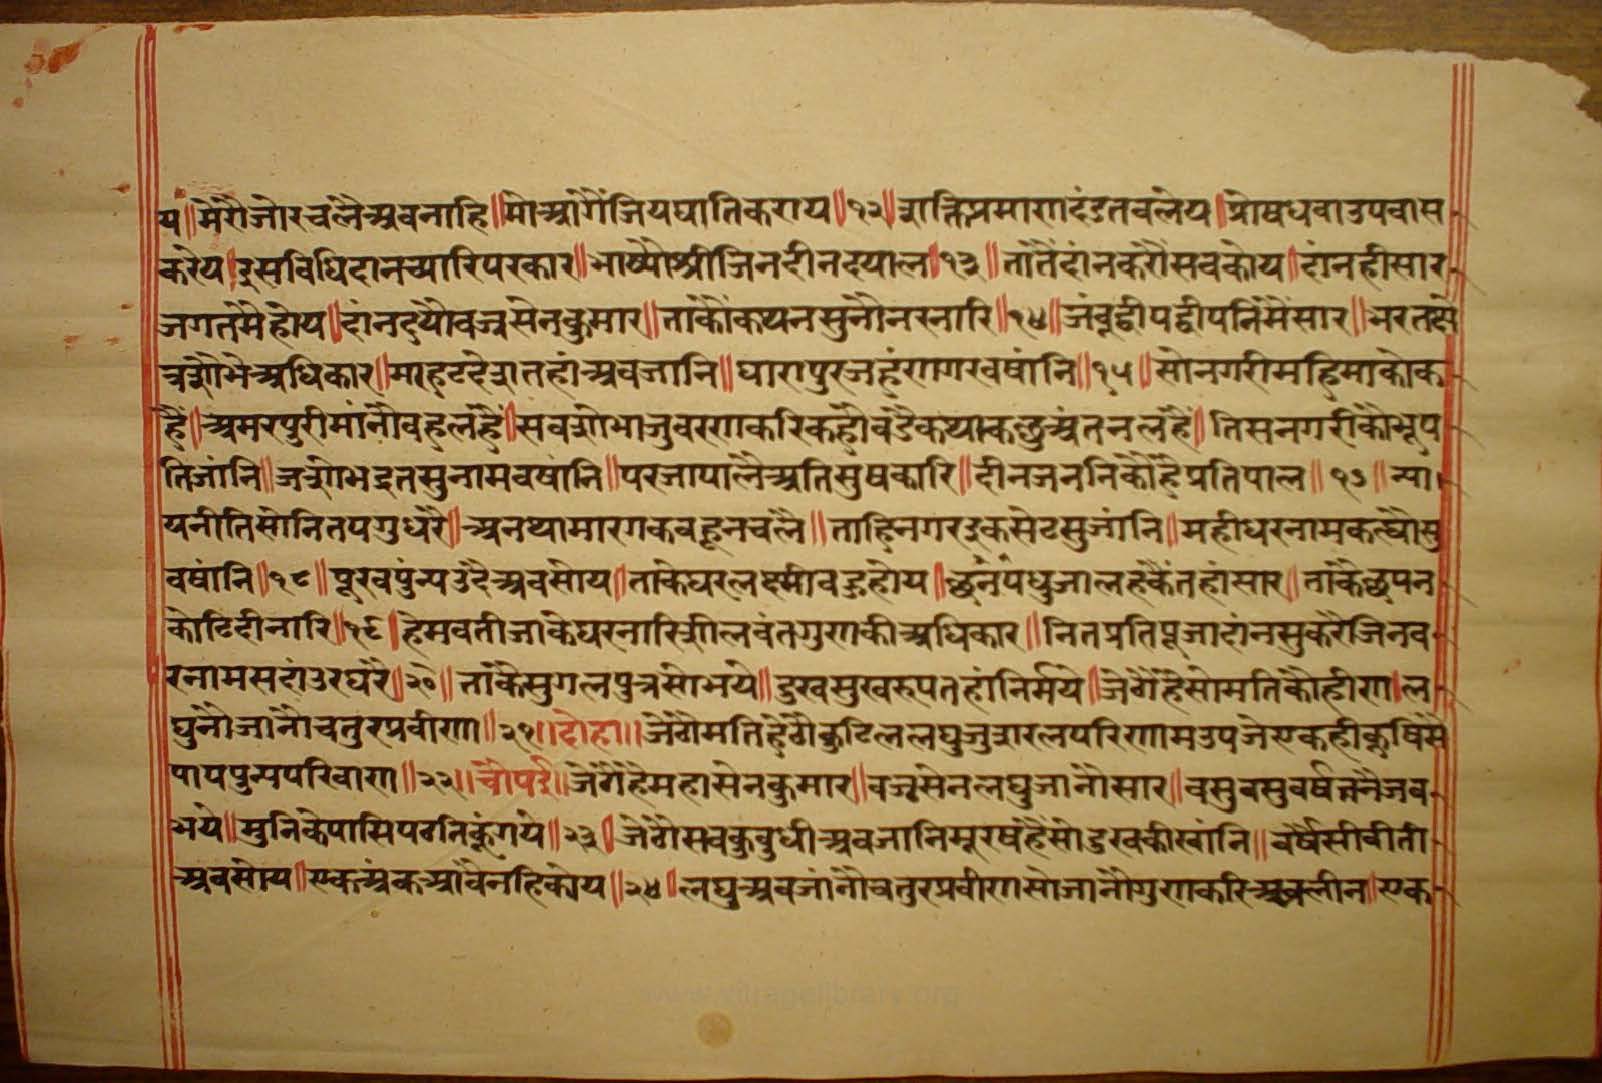 य॥मेरौजोरचलैअवनाहि॥मोआगैंजियघातिकराय॥१२॥शक्तिप्रमाणदंडतवलेय॥प्रोषधवाउपवास
करेय॥इसविधिदानच्यारिपरकार॥भाष्यौश्रीजिनदीनदयाल॥१३॥तांतैंदांनकरौसवकोय॥दांनहीसार
जगतमेंहोय॥दांनदयौवज्रसेनकुमार॥तांकौंकथनसुनौनरनारि॥१४॥जंवूद्वीपद्वीपनिमैंसार॥भरतक्षे
त्रशोभैअधिकार॥माहटदेशतहांअवजानि॥घारापुरजहंगागरवषांनि॥१५॥सोनगरीमहिमाकोक
हैं॥अमरपुरीमांनौवहलहैं॥सवशोभाजुवरणकरिकहौं॥वडैकथाकछुअंतनलहैं॥तिसनगरीकौभूप
तिजांनि॥जशोभद्रतसुनामवषांनि॥परजापालैअतिसुषकारि॥दीनजननिकौंहैप्रतिपाल॥१७॥न्या
यनीतिसोंनितपगुधरै॥अनथामारगकवहूनचलै॥ताहिनगरइकसेटसुजांनि॥महीधरनामकत्द्यौसु
वषांनि॥१८॥पूरवपुंन्यउदैअवसोय॥ताकेघरलक्ष्मीवहुहोय॥छनंपंधुजालहकैंतहांसार॥तांकैछपन
कोटिदीनारि॥१९॥हेमवतीजाकेघरनारि॥शीलवंतगुणकीअधिकार॥नितप्रतिपूजादांनसुकरैजिनव
रनामसदांउरधरै॥२०॥तांकैसुगलपुत्रसोभये॥दुखसुखरुपतहांनिर्मये॥जेगैंहैसोमतिकौहीण॥ल
घुनौजानौचतुरप्रवीण॥२१॥दोहा॥जेठेमतिहैठौकुटिललघुजुशरलपरिणामउपजेएकहीकूषिसै
पापपुन्यपरिवाण॥२२॥चौपई॥जेठैंहैमहासेनकुमार॥वज्रसेनलघुजानौंसार॥वसुवसुवर्षतनैजव
भये॥मुनिकेपासिपठनिकूंगये॥२३॥जेठौसवकुवुधीअवजानिमूरषहैंसोदुखकीखांनि॥वर्षअसीवीती
अवसोय॥एकअंकआवैनहिकोय॥२४॥लघुअवजांनौचतुरप्रवीणसोजानौगुणकरिअवलीन॥एक